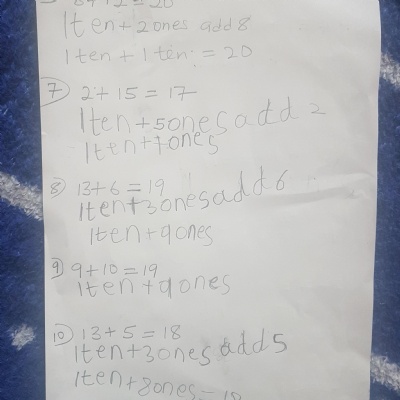 8+12=20
1ten+2ones add 8
1ten+1ten=20
7 2+15=17
1ten+5ones add 2
1ten+7ones
8 13+6=19
1ten+3ones add 6
1ten+9ones
9 9+10=19
1ten+9ones
10 13+5=18
1ten+3ones add 5
1ten+8ones=18